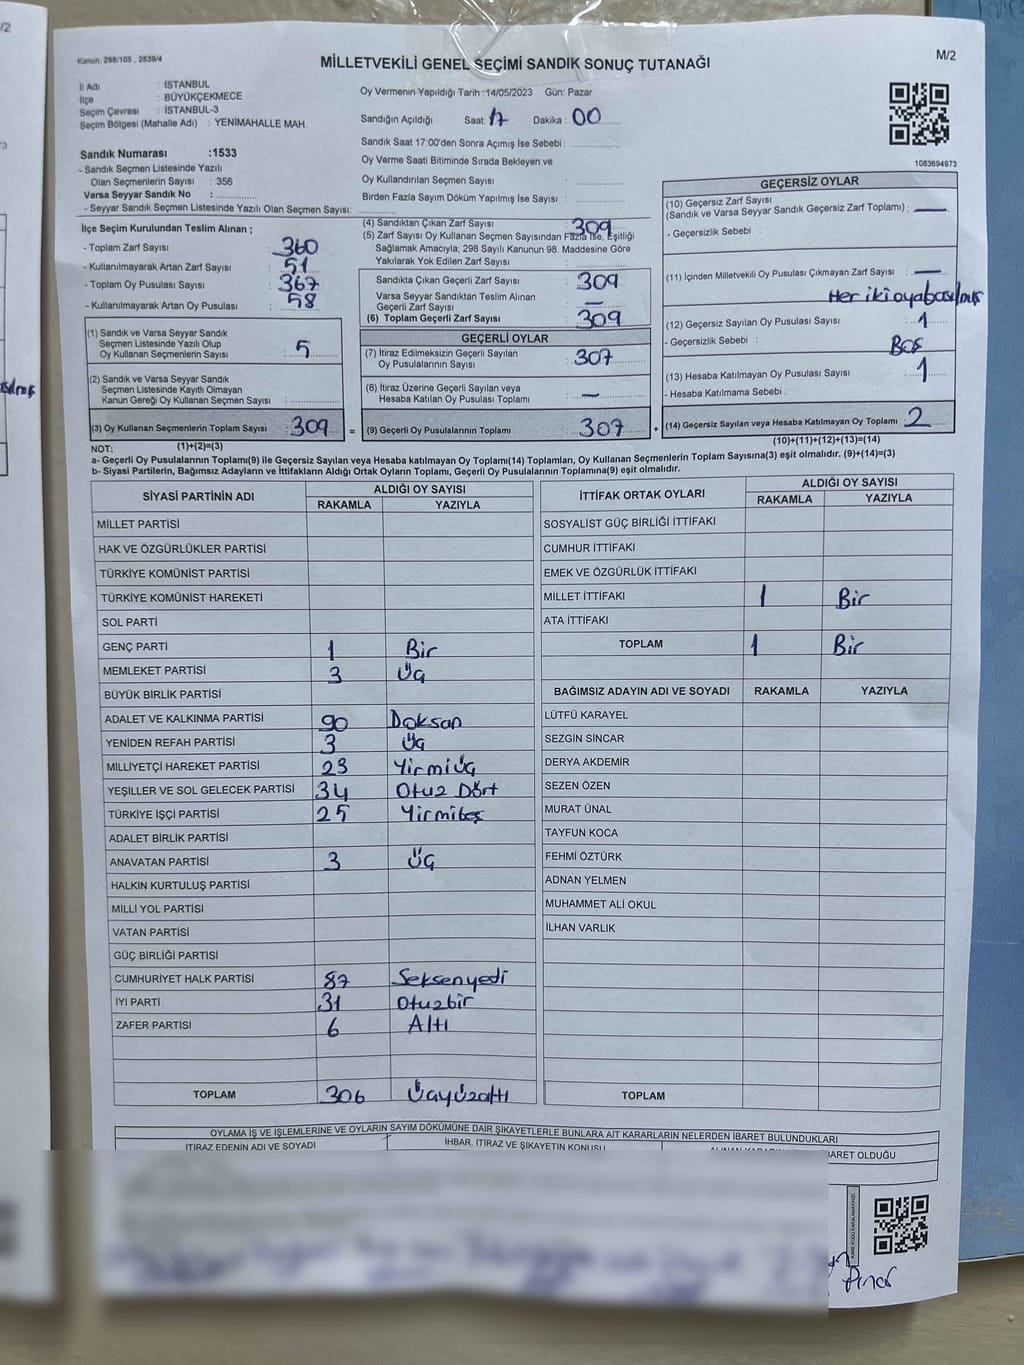 Kanun: 298/105 , 2839/4
MİLLETVEKİLİ GENEL SEÇİMİ SANDIK SONUÇ TUTANAĞI
M/2
İl Adı : İSTANBUL
İlçe : BÜYÜKÇEKMECE
Seçim Çevresi : İSTANBUL-3
Seçim Bölgesi (Mahalle Adı) : YENİMAHALLE MAH.
Sandık Numarası :1533
- Sandık Seçmen Listesinde Yazılı
Olan Seçmenlerin Sayısı : 356
Varsa Seyyar Sandık No :
- Seyyar Sandık Seçmen Listesinde Yazılı Olan Seçmen Sayısı:
Oy Vermenin Yapıldığı Tarih :14/05/2023 Gün: Pazar
Sandığın Açıldığı Saat: 17 Dakika : 00
Sandık Saat 17:00'den Sonra Açımış İse Sebebi :
Oy Verme Saati Bitiminde Sırada Bekleyen ve
Oy Kullandırılan Seçmen Sayısı :
Birden Fazla Sayım Döküm Yapılmış İse Sayısı :
1083694973
İlçe Seçim Kurulundan Teslim Alınan ;
- Toplam Zarf Sayısı : 360
- Kullanılmayarak Artan Zarf Sayısı : 51
- Toplam Oy Pusulası Sayısı : 367
- Kullanılmayarak Artan Oy Pusulası : 58
(1) Sandık ve Varsa Seyyar Sandık
Seçmen Listesinde Yazılı Olup
Oy Kullanan Seçmenlerin Sayısı : 5
(2) Sandık ve Varsa Seyyar Sandık
Seçmen Listesinde Kayıtlı Olmayan
Kanun Gereği Oy Kullanan Seçmen Sayısı :
(3) Oy Kullanan Seçmenlerin Toplam Sayısı : 309 =
(4) Sandıktan Çıkan Zarf Sayısı : 309
(5) Zarf Sayısı Oy Kullanan Seçmen Sayısından Fazla İse, Eşitliği
Sağlamak Amacıyla; 298 Sayılı Kanunun 98. Maddesine Göre
Yakılarak Yok Edilen Zarf Sayısı :
Sandıkta Çıkan Geçerli Zarf Sayısı : 309
Varsa Seyyar Sandıktan Teslim Alınan
Geçerli Zarf Sayısı : —
(6) Toplam Geçerli Zarf Sayısı : 309
GEÇERLİ OYLAR
(7) İtiraz Edilmeksizin Geçerli Sayılan
Oy Pusulalarının Sayısı : 307
(8) İtiraz Üzerine Geçerli Sayılan veya
Hesaba Katılan Oy Pusulası Toplamı : —
(9) Geçerli Oy Pusulalarının Toplamı : 307 +
GEÇERSİZ OYLAR
(10) Geçersiz Zarf Sayısı
(Sandık ve Varsa Seyyar Sandık Geçersiz Zarf Toplamı) : —
- Geçersizlik Sebebi :
(11) İçinden Milletvekili Oy Pusulası Çıkmayan Zarf Sayısı : —
Her iki oya basılmış
(12) Geçersiz Sayılan Oy Pusulası Sayısı : 1
- Geçersizlik Sebebi : Boş
(13) Hesaba Katılmayan Oy Pusulası Sayısı : 1
- Hesaba Katılmama Sebebi :
(14) Geçersiz Sayılan veya Hesaba Katılmayan Oy Toplamı : 2
NOT: (1)+(2)=(3) (10)+(11)+(12)+(13)=(14)
a- Geçerli Oy Pusulalarının Toplamı(9) ile Geçersiz Sayılan veya Hesaba katılmayan Oy Toplamı(14) Toplamları, Oy Kullanan Seçmenlerin Toplam Sayısına(3) eşit olmalıdır. (9)+(14)=(3)
b- Siyasi Partilerin, Bağımsız Adayların ve İttifakların Aldığı Ortak Oyların Toplamı, Geçerli Oy Pusulalarının Toplamına(9) eşit olmalıdır.
SİYASİ PARTİNİN ADI ALDIĞI OY SAYISI
RAKAMLA YAZIYLA
MİLLET PARTİSİ
HAK VE ÖZGÜRLÜKLER PARTİSİ
TÜRKİYE KOMÜNİST PARTİSİ
TÜRKİYE KOMÜNİST HAREKETİ
SOL PARTİ
GENÇ PARTİ 1 Bir
MEMLEKET PARTİSİ 3 Üç
BÜYÜK BİRLİK PARTİSİ
ADALET VE KALKINMA PARTİSİ 90 Doksan
YENİDEN REFAH PARTİSİ 3 Üç
MİLLİYETÇİ HAREKET PARTİSİ 23 Yirmiüç
YEŞİLLER VE SOL GELECEK PARTİSİ 34 Otuz Dört
TÜRKİYE İŞÇİ PARTİSİ 25 Yirmibeş
ADALET BİRLİK PARTİSİ
ANAVATAN PARTİSİ 3 Üç
HALKIN KURTULUŞ PARTİSİ
MİLLİ YOL PARTİSİ
VATAN PARTİSİ
GÜÇ BİRLİĞİ PARTİSİ
CUMHURİYET HALK PARTİSİ 87 Seksenyedi
İYİ PARTİ 31 Otuzbir
ZAFER PARTİSİ 6 Altı
TOPLAM 306 Üçyüzaltı
İTTİFAK ORTAK OYLARI ALDIĞI OY SAYISI
RAKAMLA YAZIYLA
SOSYALİST GÜÇ BİRLİĞİ İTTİFAKI
CUMHUR İTTİFAKI
EMEK VE ÖZGÜRLÜK İTTİFAKI
MİLLET İTTİFAKI 1 Bir
ATA İTTİFAKI
TOPLAM 1 Bir
BAĞIMSIZ ADAYIN ADI VE SOYADI RAKAMLA YAZIYLA
LÜTFÜ KARAYEL
SEZGİN SİNCAR
DERYA AKDEMİR
SEZEN ÖZEN
MURAT ÜNAL
TAYFUN KOCA
FEHMİ ÖZTÜRK
ADNAN YELMEN
MUHAMMET ALİ OKUL
İLHAN VARLIK
TOPLAM
OYLAMA İŞ VE İŞLEMLERİNE VE OYLARIN SAYIM DÖKÜMÜNE DAİR ŞİKAYETLERLE BUNLARA AİT KARARLARIN NELERDEN İBARET BULUNDUKLARI
İTİRAZ EDENİN ADI VE SOYADI İHBAR, İTİRAZ VE ŞİKAYETİN KONUSU BARET OLDUĞU
Pınar